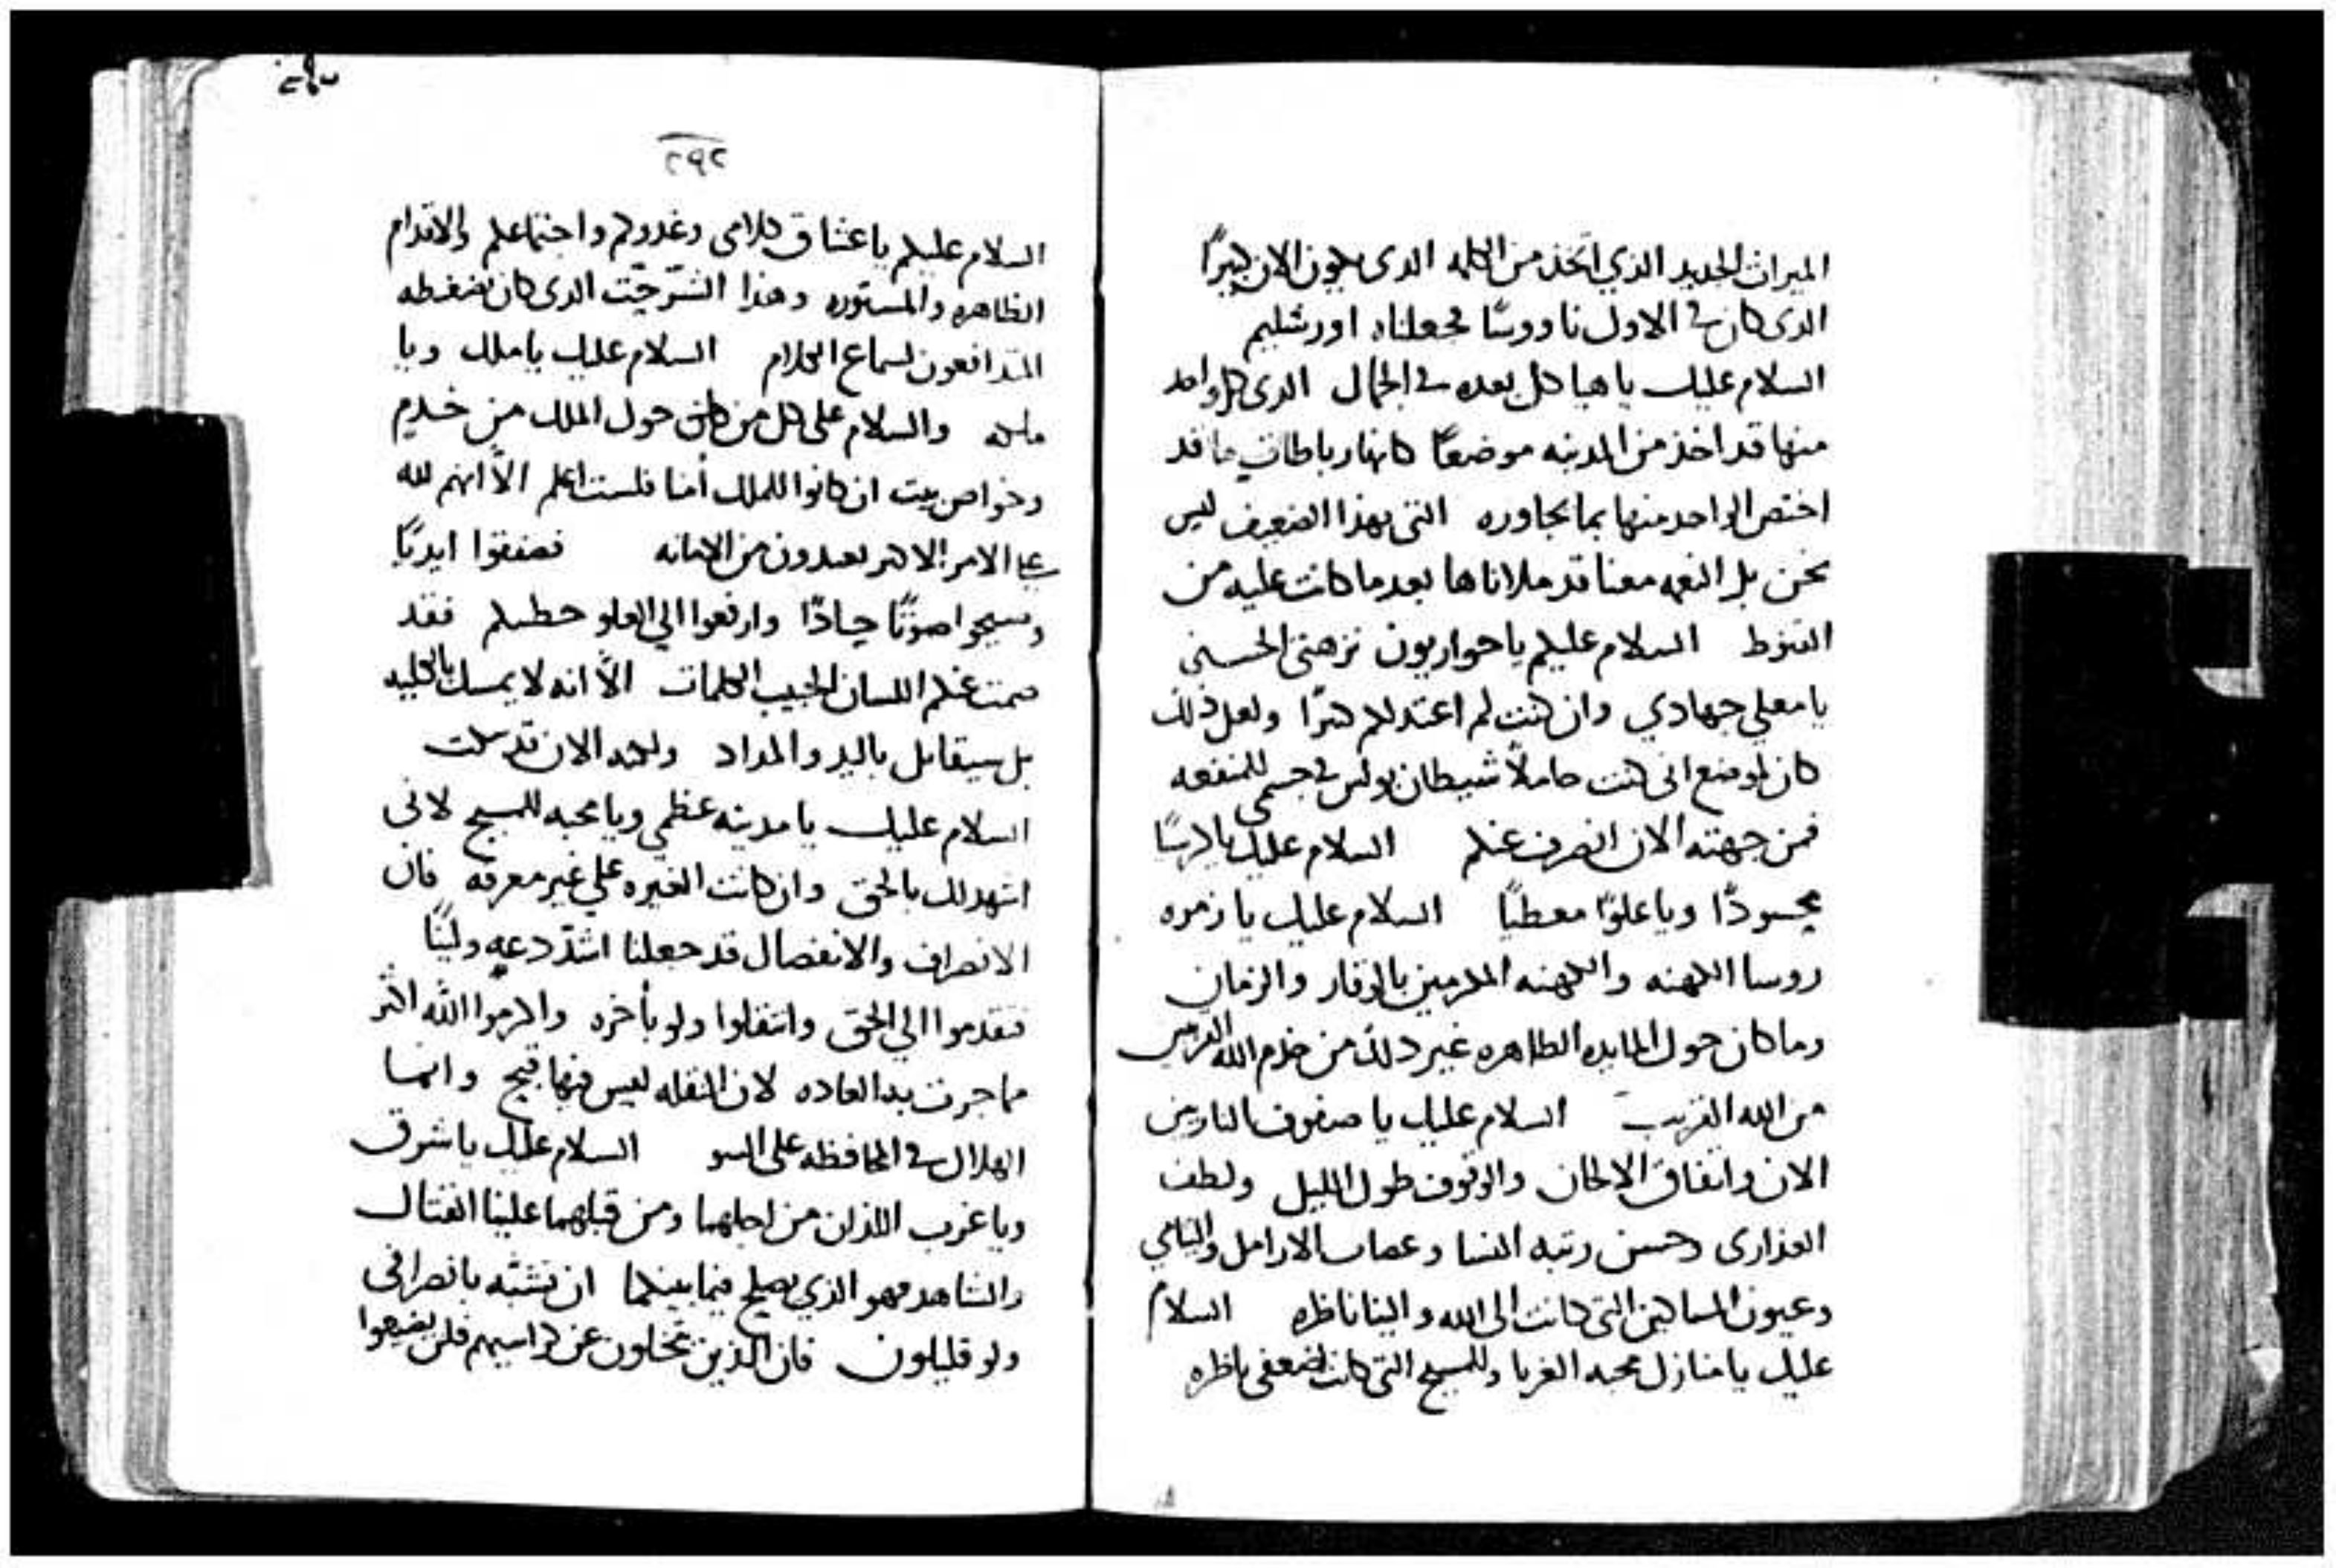 الميراث الجديد الذي اتخذ من الكلمه الدى يكون الان كبيرًا
الدى كان في الاول ناووسًا فجعلناه اورشليم
السلام عليك يا هياكل بعده في الجمال الدى كل واحد
منها قد اخذ من المدينه موضعًا كانها رباطات ما قد
اختص الواحد منها بما يجاوره التى بهذا الضعيف ليس
نحن بل النعمه معنا قد ملاناها بعد ما كانت عليه من
القنوط السلام عليكم يا حواريون نزهتى الحسنى
يا معلمي جهادي وان كنت لم اعتد لكم كثرًا ولعل ذلك
كان لموضع انى كنت حاملًا شيطان بولس في جسمي للمنفعه
فمن جهته الان انصرف عنكم السلام عليك يا كرسيًا
محسودًا ويا علوًا معطبًا السلام عليك يا زمره
روسا الكهنه والكهنه المكرمين بالوقار والزمان
وما كان حول المايده الطاهره غير ذلك من خدم الله القربين
من الله القريب السلام عليك يا صفوف النادرين
الان واتفاق الالحان والوقوف طول الليل ولطف
العذارى وحسن رتبه النسا وعصاب الارامل واليتامي
وعيون المساكين التى كانت الى الله والينا ناظره السلام
عليك يا منازل محبه الغربا وللمسيح التى كانت لضعفى ناظره
٢٩٢
السلام عليكم يا عشاق كلامى وغدوكم واجتماعكم والاقدام
الظاهره والمستوره وهذا الدى كان يضغطه
المتدافعون لسماع الكلام السلام عليك يا ملك ويا
ملكه والسلام على كل من كان حول الملك من خدم
وخواص بيت ان كانوا للملك أمنا فلست اعلم الّا انهم لله
على الامر الاكثر بعيدون من الامانه فصفقوا ايديًا
وسبحوا صوتًا حادًا وارفعوا الى العلو خطيبكم فقد
صمت عنكم اللسان الحبيب الكلمات الّا انه لا يمسك بالكليه
بل سيقاتل باليد والمداد ولكنه الان قد سكت
السلام عليك يا مدينه عظمى ويا محبه للمسيح لانى
اشهد لك بالحق وان كانت الغيره على غير معرفه فان
الانصراف والانفصال قد جعلنا اشدّ دعه ولينًا
فتقدموا الى الحق وانتقلوا ولو بأخره واكرموا اللّه اكثر
مما جرت به العاده لان النقله ليس فيها قبح وانما
الهلاك في المحافظه على السو السلام عليك يا شرق
ويا غرب اللذان من اجلهما ومن قبلهما علينا القتال
والشاهد فهو الذي يصلح فيما بينكما ان تشبّه بانصرافى
ولو قليلون فان الذين يتخلون عن كراسيهم فلن يضيعوا